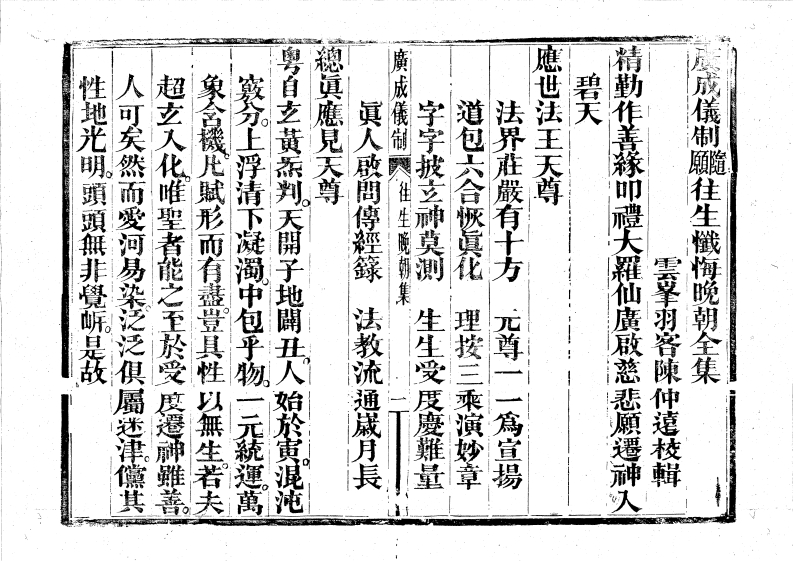 廣成儀制隨願往生懺悔晚朝全集
雲峯羽客陳仲遠校輯
精勤作善緣叩禮大羅仙廣啟慈悲願遷神入
碧天
應世法王天尊
法界莊嚴有十方　元尊一一爲宣揚
道包六合恢眞化　理按三乘演妙章
字字披玄神莫測　生生受度慶難量
眞人啟問傳經籙　法教流通歲月長
廣成儀制　往生晚朝集　一
總眞應見天尊
粤自玄黃炁判。天開子地闢丑。人始於寅。混沌
竅分。上浮清下凝濁。中包乎物。一元統運萬
象含機。凡賦形而有盡。豈具性以無生。若夫
超玄入化。唯聖者能之至於受度遷神雖善。
人可矣。然而愛河易染泛泛俱屬迷津。儻其
性地光明。頭頭無非覺岍。是故